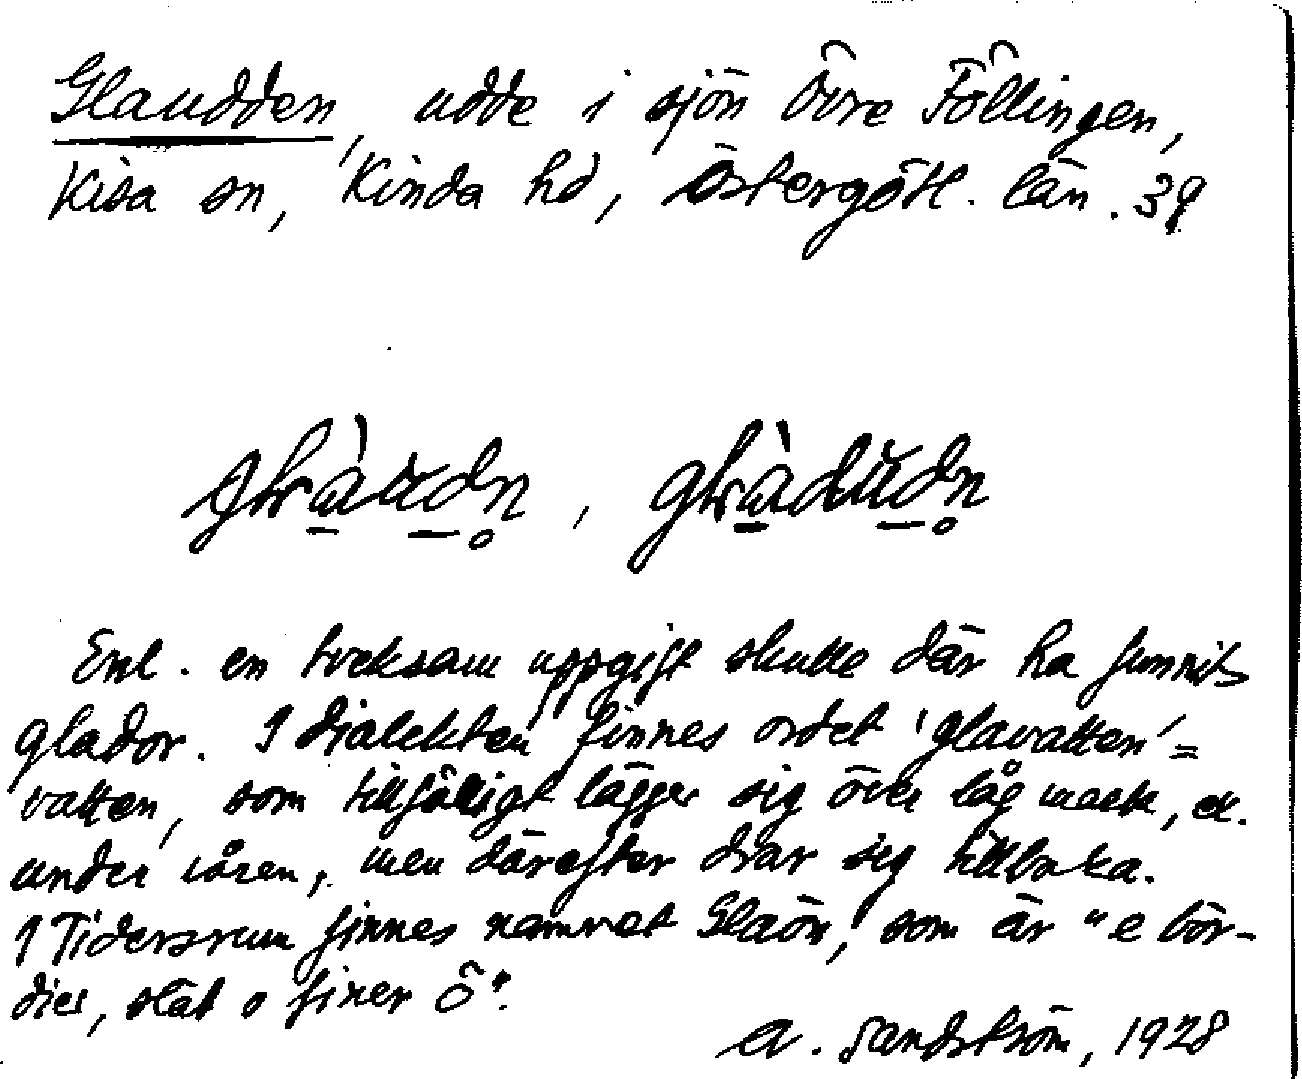 Glaudden, udde i sjön Övre Föllingen,
Kisa sn, Kinda hd, Östergötl. län. 39
Enl. en tveksam uppgift skulle där ha funnits
glador. I dialekten finnes ordet 'glavatten' =
vatten, som tillfälligt lägger sig över låg mark, ex.
under våren, men därefter drar sig tillbaka.
I Tidersrum finnes namnet Glaön, som är "e bör-
dier, slät o finer ö".
A. Sandström, 1928